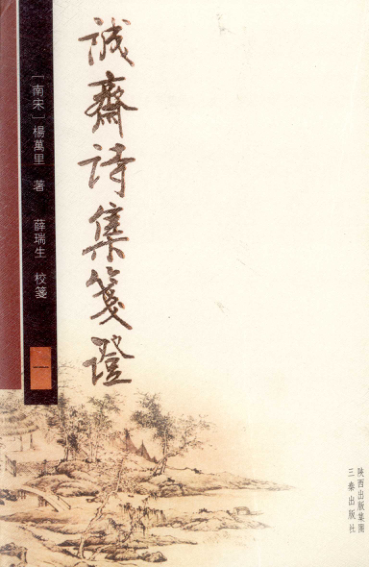 誠齋詩集箋證
[南宋]楊萬里 著 薛瑞生 校箋
一
陝西出版集團
三秦出版社